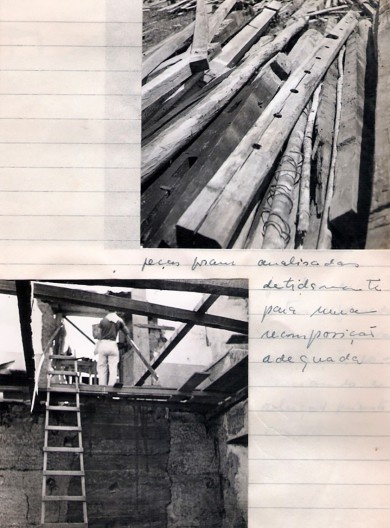 peças foram analisadas
detidamente
para uma
recomposição
adequada